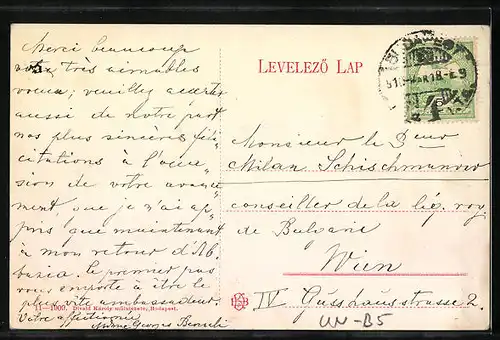 Merci beaucoup
votre très aimables
voeux; veuillez accepter
aussi de notre part
nos plus sincères féli-
citations à l'occa-
sion de votre avance-
ment, que je n'ai ap-
pris que maintenant
à mon retour d'Ab-
bazia. Le premier pas
vous emporte à être le
plus vite ambassadeur.
Votre affectionné
Georges
LEVELEZŐ LAP
BUDAPEST
Monsieur le Dr
Milan Schischmanow
conseiller de la lég. roy.
de Bulgarie
Wien
IV Gusshausstrasse 2.
11—1909. Divald Károly műintézete, Budapest.
UN-B5